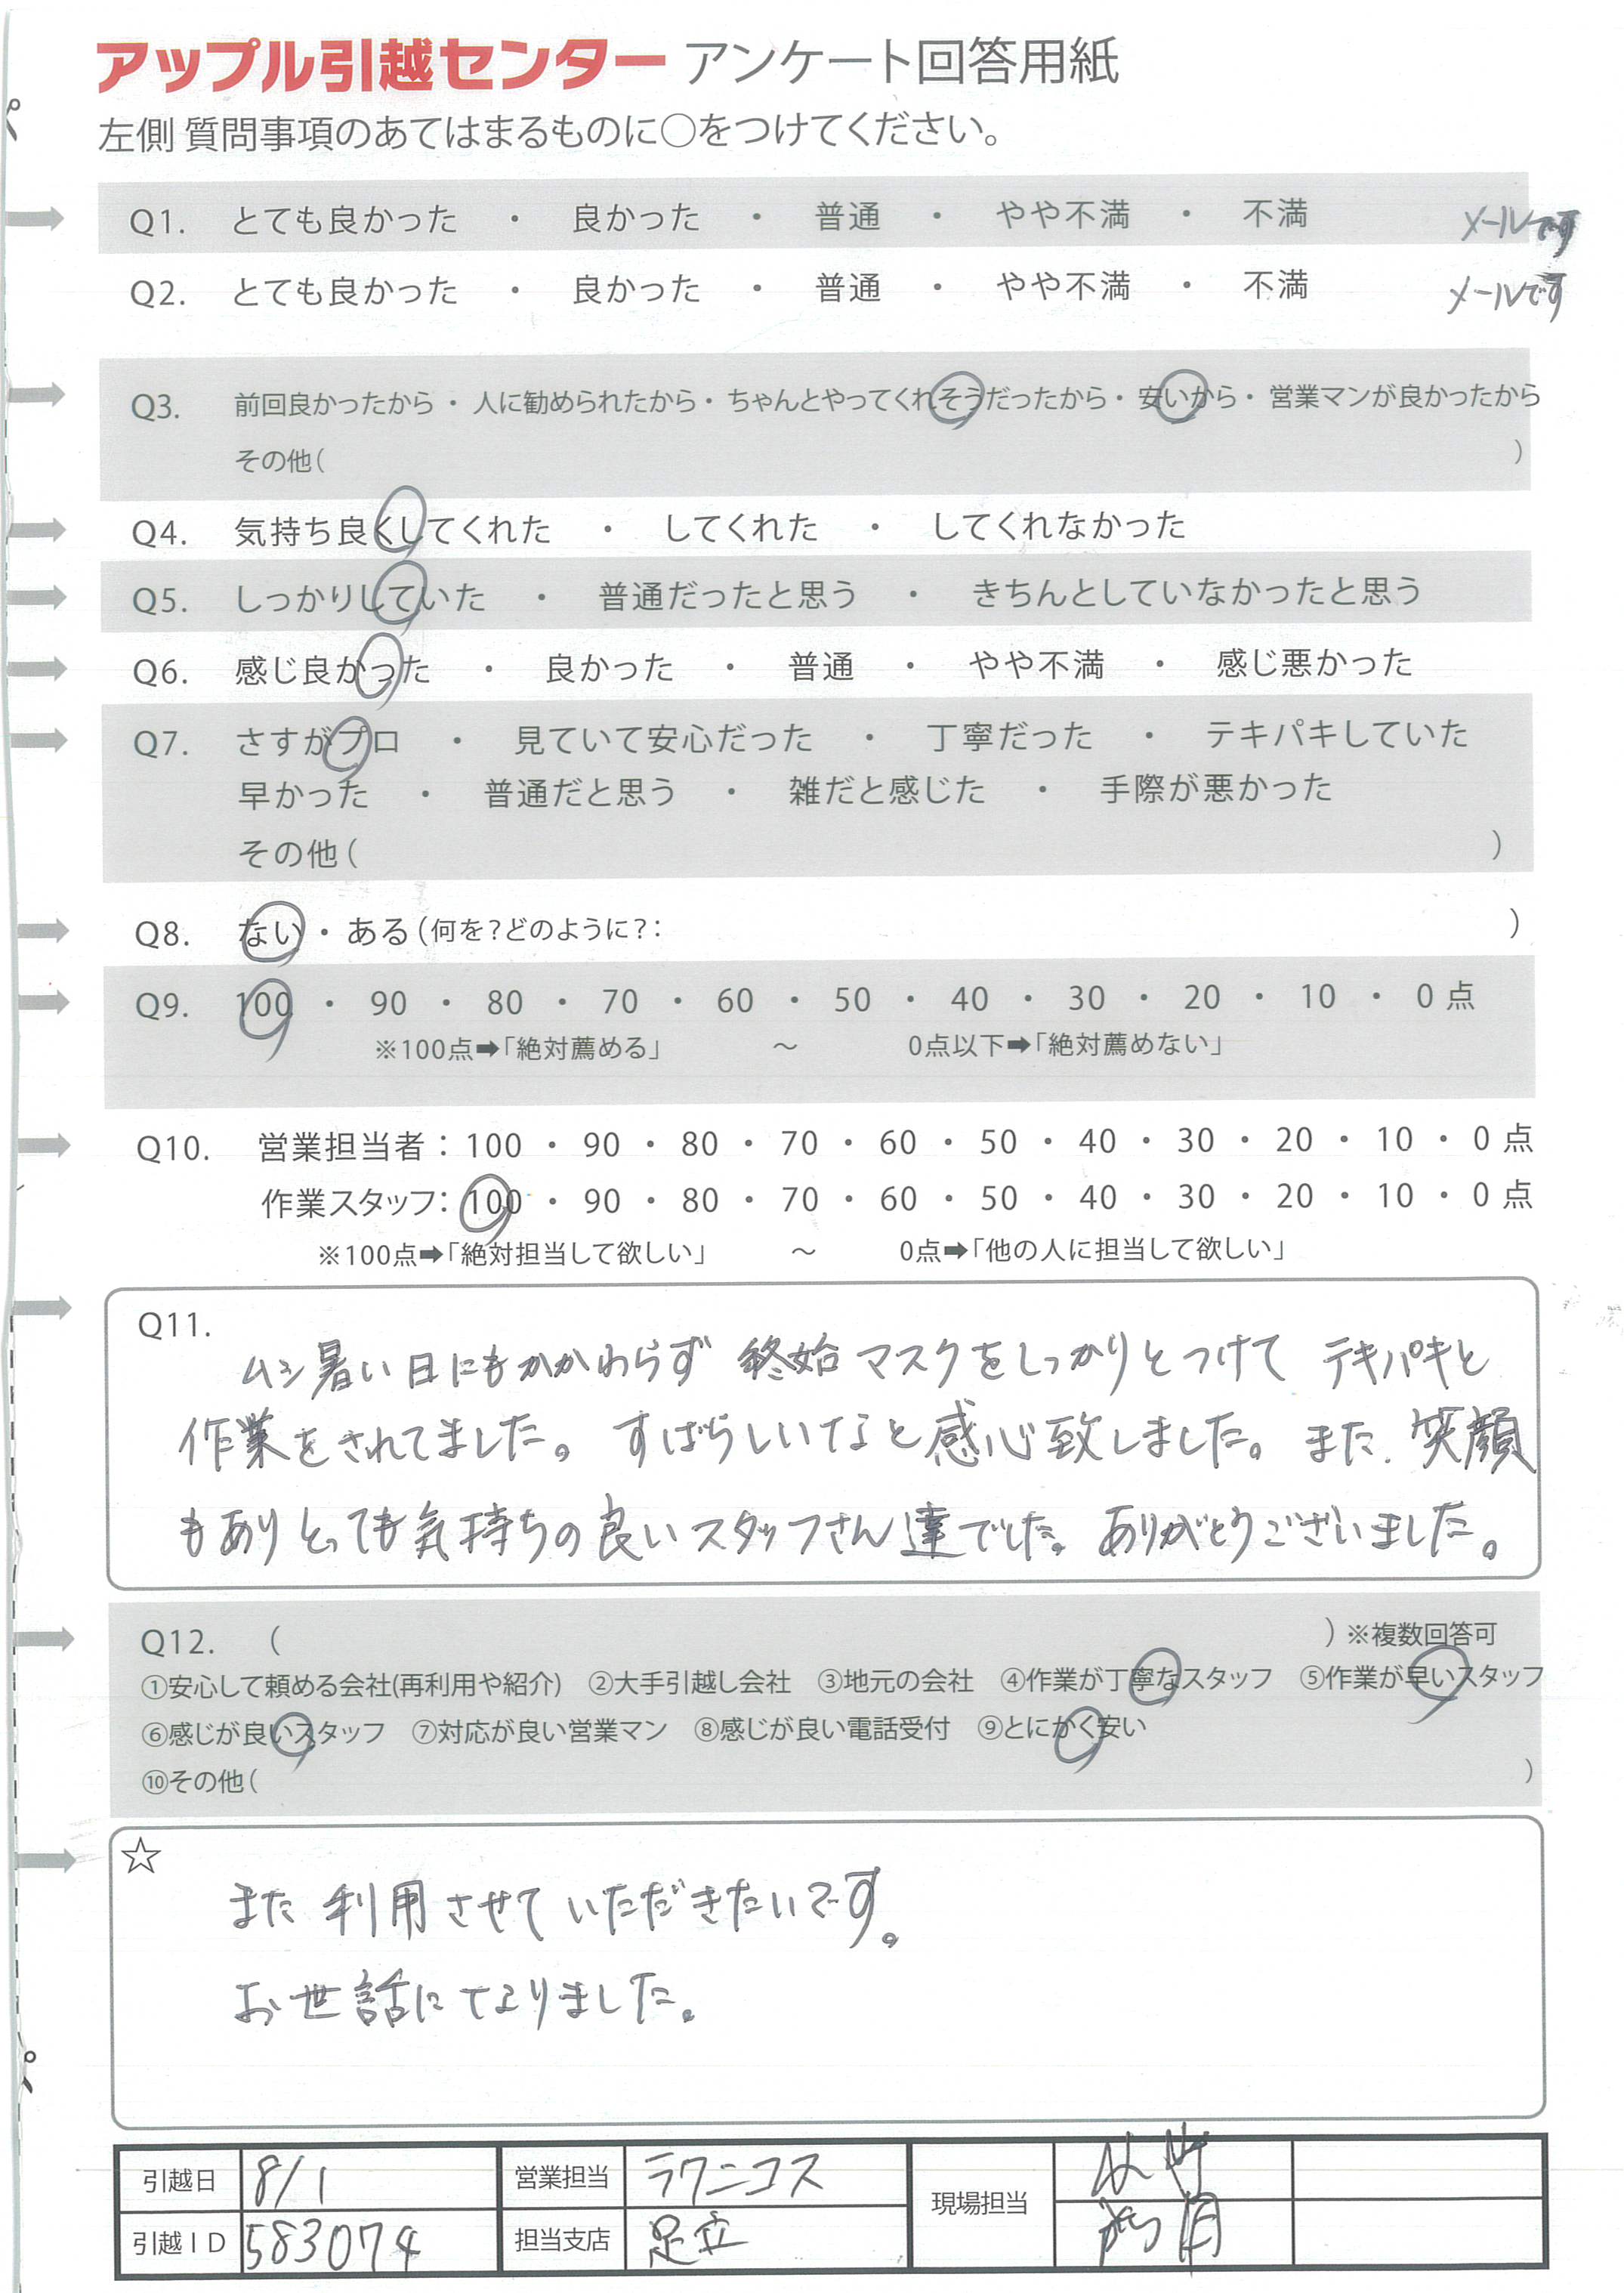 アップル引越センター アンケート回答用紙
左側 質問事項のあてはまるものに○をつけてください。
Q1. とても良かった ・ 良かった ・ 普通 ・ やや不満 ・ 不満 メールです
Q2. とても良かった ・ 良かった ・ 普通 ・ やや不満 ・ 不満 メールです
Q3. 前回良かったから ・ 人に勧められたから ・ ちゃんとやってくれそうだったから ・ 安いから ・ 営業マンが良かったから
その他( )
Q4. 気持ち良くしてくれた ・ してくれた ・ してくれなかった
Q5. しっかりしていた ・ 普通だったと思う ・ きちんとしていなかったと思う
Q6. 感じ良かった ・ 良かった ・ 普通 ・ やや不満 ・ 感じ悪かった
Q7. さすがプロ ・ 見ていて安心だった ・ 丁寧だった ・ テキパキしていた
早かった ・ 普通だと思う ・ 雑だと感じた ・ 手際が悪かった
その他( )
Q8. ない ・ ある (何を?どのように?: )
Q9. 100 ・ 90 ・ 80 ・ 70 ・ 60 ・ 50 ・ 40 ・ 30 ・ 20 ・ 10 ・ 0 点
※100点➡「絶対薦める」 ~ 0点以下➡「絶対薦めない」
Q10. 営業担当者: 100 ・ 90 ・ 80 ・ 70 ・ 60 ・ 50 ・ 40 ・ 30 ・ 20 ・ 10 ・ 0 点
作業スタッフ: 100 ・ 90 ・ 80 ・ 70 ・ 60 ・ 50 ・ 40 ・ 30 ・ 20 ・ 10 ・ 0 点
※100点➡「絶対担当して欲しい」 ~ 0点➡「他の人に担当して欲しい」
Q11.
ムシ暑い日にもかかわらず 終始 マスクをしっかりとつけて テキパキと
作業をされてました。すばらしいなと感心致しました。また、笑顔
もありとっても気持ちの良いスタッフさん達でした。ありがとうございました。
Q12. ( ) ※複数回答可
①安心して頼める会社(再利用や紹介) ②大手引越し会社 ③地元の会社 ④作業が丁寧なスタッフ ⑤作業が早いスタッフ
⑥感じが良いスタッフ ⑦対応が良い営業マン ⑧感じが良い電話受付 ⑨とにかく安い
⑩その他( )
☆
また利用させていただきたいです。
お世話になりました。
引越日 8/1 営業担当 ラクニコス 現場担当
引越ID 583074 担当支店 足立